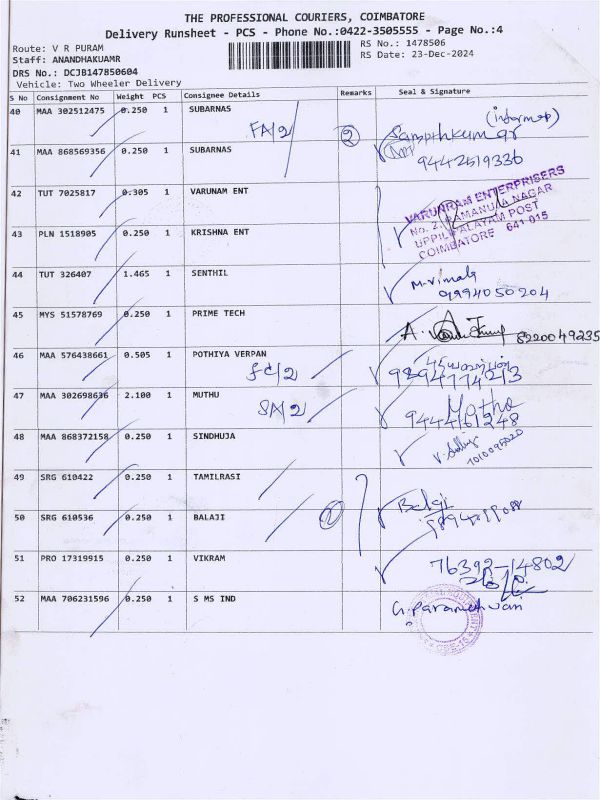 THE PROFESSIONAL COURIERS, COIMBATORE
Delivery Runsheet - PCS - Phone No.:0422-3505555 - Page No.:4
Route: V R PURAM
RS No.: 1478506
Staff: ANANDHAKUAMR
RS Date: 23-Dec-2024
DRS No.: DCJB147850604
Vehicle: Two Wheeler Delivery
S No Consignment No Weight PCS Consignee Details Remarks Seal & Signature
40 MAA 302512475 0.250 1 SUBARNAS
FA/2 2 Sampthkumar
41 MAA 868569356 0.250 1 SUBARNAS
9442519336
42 TUT 7025817 0.305 1 VARUNAM ENT
VARUNRAM ENTERPRISERS
No. 2, RAMANUJA NAGAR
UPPILIPALAYAM POST
COIMBATORE 641 015
43 PLN 1518905 0.250 1 KRISHNA ENT
44 TUT 326407 1.465 1 SENTHIL
M. Vimala
9994050204
45 MYS 51578769 0.250 1 PRIME TECH
8220049235
46 MAA 576438661 0.505 1 POTHIYA VERPAN
FC/2
47 MAA 302698636 2.100 1 MUTHU
SA/2 Mutho
48 MAA 868372158 0.250 1 SINDHUJA
49 SRG 610422 0.250 1 TAMILRASI
Balaji
50 SRG 610536 0.250 1 BALAJI
51 PRO 17319915 0.250 1 VIKRAM
76392-14802
52 MAA 706231596 0.250 1 S MS IND
G. Parameshwari